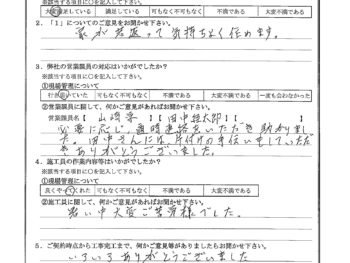 ※該当する項目に○を記入して下さい。
大変満足している 満足している 可もなく不可もなく 不満である 大変不満である
2. 「1」についてのご意見をお聞かせ下さい。
家が若返って気持ちよく住めます。
3. 弊社の営業課員の対応はいかがでしたか?
※該当する項目に○を記入して下さい。
①現場管理について
行き届いていた 可もなく不可もなく 不満である 大変不満である 一度も会わなかった
②営業課員に関して、何かご意見があればお聞かせ下さい。
営業課員名【 山崎 】【 田中 太郎 】【
必要に応じ、適時連絡をいただき助かりまし
た。田中さんには、片付けの手伝いをしていただ
きありがとうございました。
4. 施工員の作業内容等はいかがでしたか?
※該当する項目に○を記入して下さい。
①現場管理について
良くやってくれた 可もなく不可もなく 不満である 大変不満である
②施工員に関して、何かご意見があればお聞かせ下さい。
暑い中大変ご苦労様でした。
5. ご契約時点から工事完工まで、何かご意見等がありましたらお聞かせ下さい。
いろいろありがとうございました